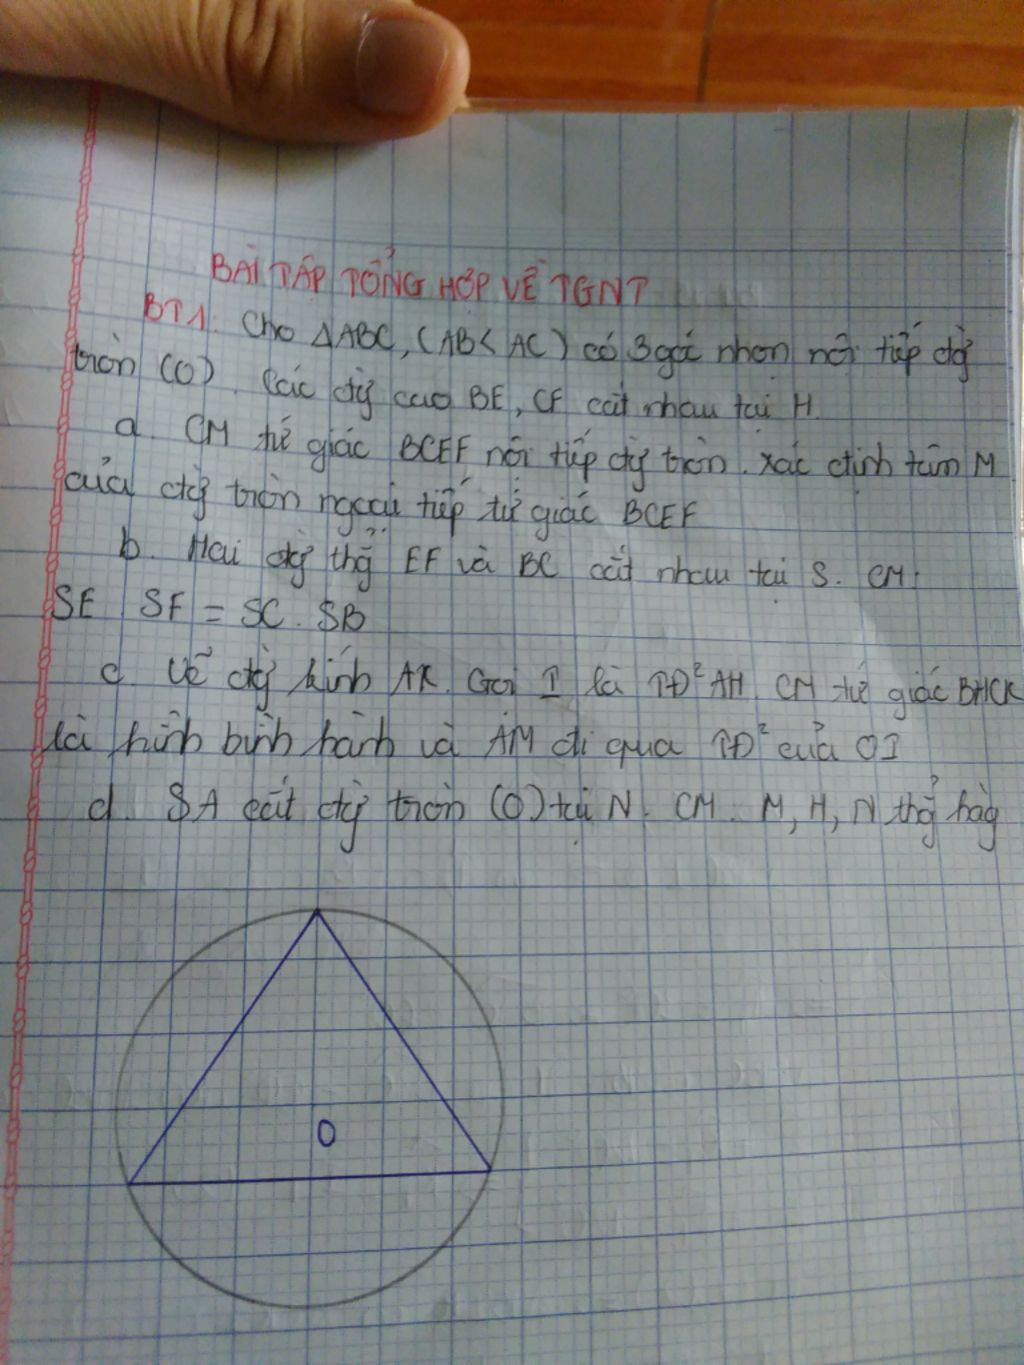 BÀI TẬP TỔNG HỢP VỀ TGNT
BT1. Cho ΔABC, (AB < AC) có 3 góc nhọn nội tiếp đg
tròn (O). Các đg cao BE, CF cắt nhau tại H.
a. CM tứ giác BCEF nội tiếp đg tròn. Xác định tâm M
của đg tròn ngoại tiếp tứ giác BCEF
b. Hai đg thg EF và BC cắt nhau tại S. CM:
SE SF = SC. SB
c Vẽ đg kính AK. Gọi I là TĐ² AH. CM tứ giác BHCK
là hình bình hành và AM đi qua TĐ² của OI
d. SA cắt đg tròn (O) tại N. CM. M, H, N thg hàg
O